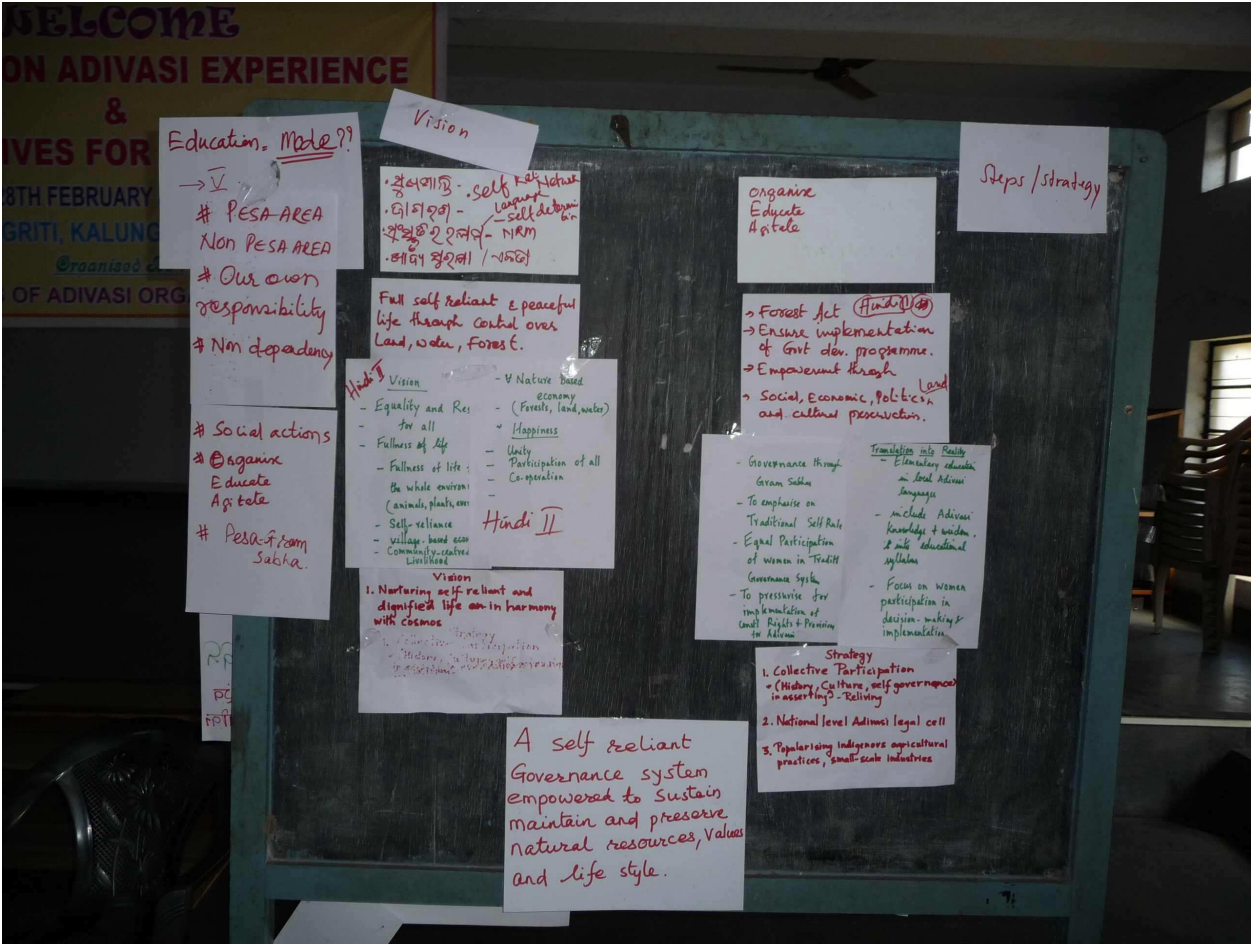 WELCOME
ON ADIVASI EXPERIENCE
&
IVES FOR
28TH FEBRUARY
GRITI, KALUNG
Organised
S OF ADIVASI ORG
Education = Mode??
→ V
# PESA-AREA
Non PESA AREA
# Our own
responsibility
# Non dependency
# Social actions
# Organise
Educate
Agitate
# Pesa-Gram
Sabha.
Vision
self
Language
- self determin
NRM
Full self reliant & peaceful
life through control over
Land, water, Forest.
Hindi II
Vision
- Equality and Res
- for all
- Fullness of life
- Fullness of life
the whole environ
(animals, plants, eve
- Self-reliance
- village-based eco
- Community-centred
Livelihood
- Nature based
economy
(Forests, land, water)
Happiness
- Unity
- Participation of all
- Co-operation
-
Hindi II
Vision
1. Nurturing self reliant and
dignified life on in harmony
with cosmos
A self reliant
Governance system
empowered to sustain
maintain and preserve
natural resources, values
and life style.
Steps / strategy
organise
Educate
Agitate
→ Forest Act Hindi
→ Ensure implementation
of Govt dev. programme.
→ Empowerment throgh
Land
→ Social, Economic,
and cultural preservation.
- Governance through
Gram Sabha
- To emphasise on
Traditional Self Rule
- Equal Participation
of women in
Governance System
- To pressurise for
implementation of
Const Rights + Provision
for Adivasi
Translation into Reality
- Elementary education
in local Adivasi
languages
- include Adivasi
Knowledge + wisdom,
into educational
syllabus
- Focus on women
participation in
decision-making &
implementation
Strategy
1. Collective Participation
- (History, Culture, self governance)
in asserting - Reliving
2. National level Adivasi legal cell
3. Popularising indigenors agricultural
practices, small-scale industries